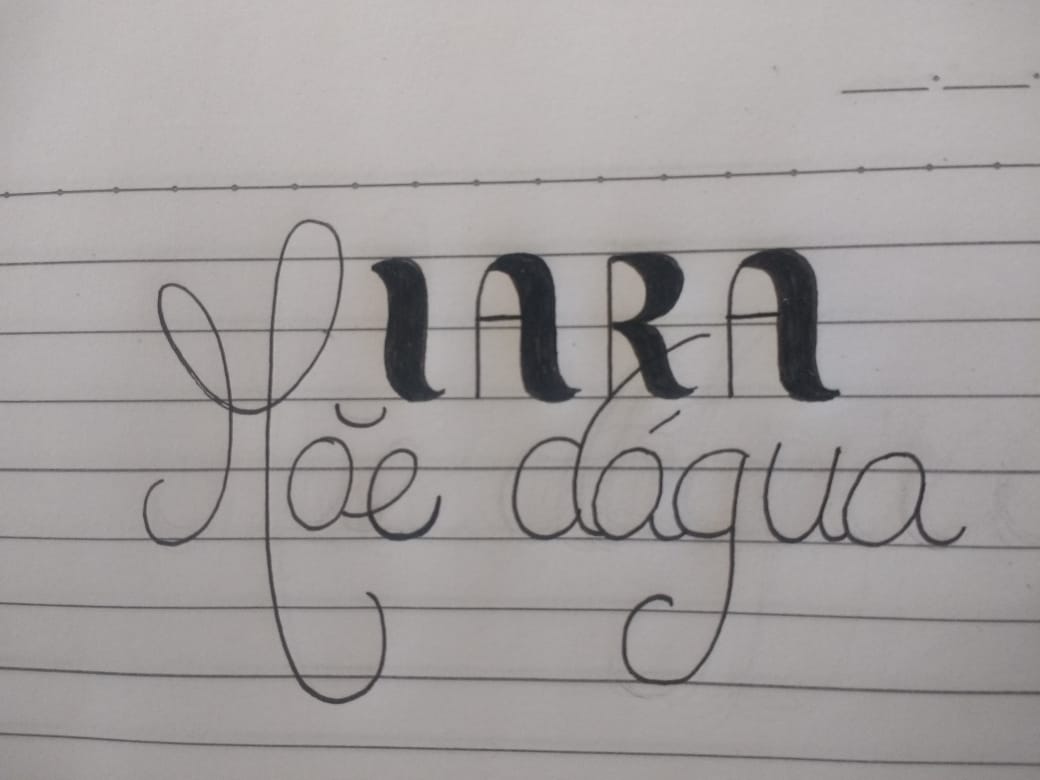 IARA
Mãe dágua